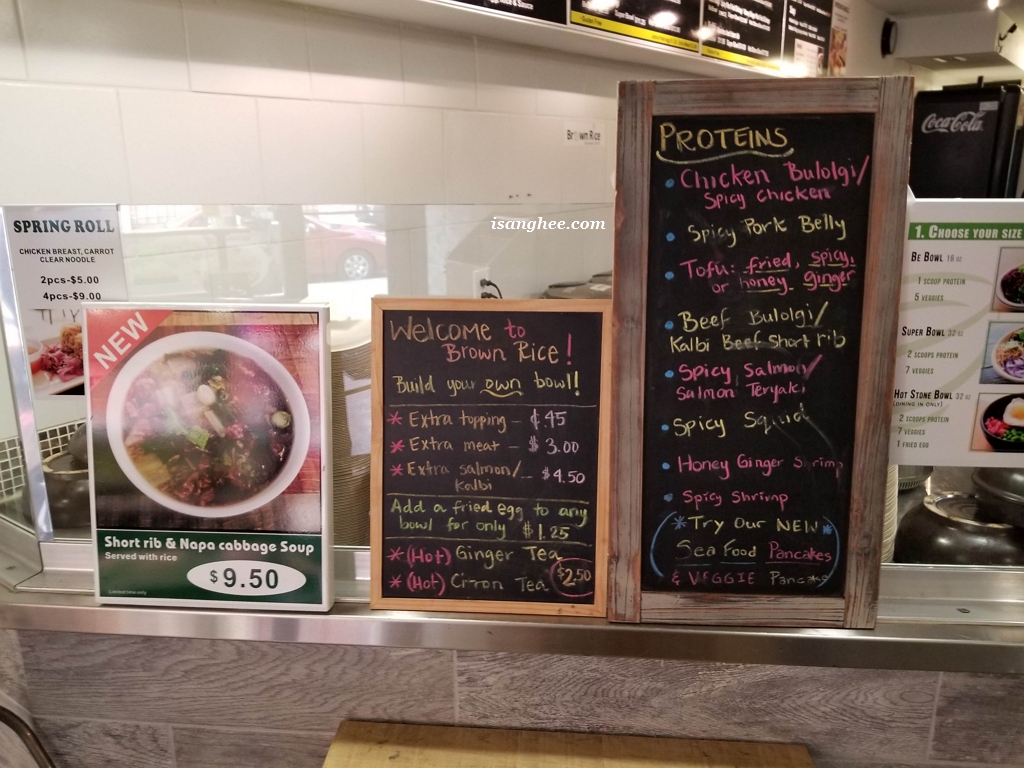 SPRING ROLL
CHICKEN BREAST, CARROT
CLEAR NOODLE
2pcs-$5.00
4pcs-$9.00
NEW
Short rib & Napa cabbage Soup
Served with rice
$9.50
Limited time only
isanghee.com
Welcome to
Brown Rice!
Build your own bowl!
* Extra topping - ¢.45
* Extra meat - $3.00
* Extra salmon/- $4.50
Kalbi
Add a fried egg to any
bowl for only $1.25
*(Hot) Ginger Tea
*(Hot) Citron Tea $2.50
Brown Rice
PROTEINS
• Chicken Bulolgi/
Spicy Chicken
• Spicy Pork Belly
• Tofu: fried, spicy,
or honey ginger
• Beef Bulolgi/
Kalbi Beef Short rib
• Spicy Salmon/
Salmon Teryaki
• Spicy Squid
• Honey Ginger Shrimp
• Spicy Shrimp
*Try Our NEW*
Sea Food Pancakes
& VEGGIE Pancake
Coca-Cola
1. CHOOSE YOUR SIZE
BE BOWL 16 oz
1 SCOOP PROTEIN
5 VEGGIES
SUPER BOWL 32 oz
2 SCOOPS PROTEIN
7 VEGGIES
HOT STONE BOWL 32 oz
(DINING IN ONLY)
2 SCOOPS PROTEIN
7 VEGGIES
1 FRIED EGG